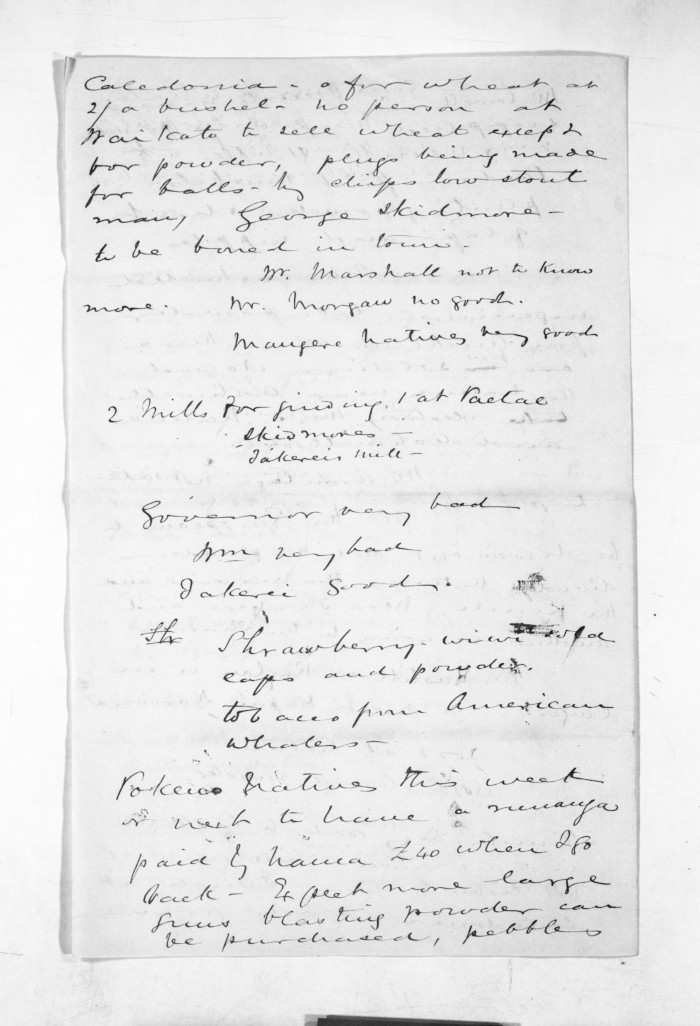 Caledonia - for wheat at
2/ a bushel - no person at
Waikato to sell wheat except
for powder, plugs being made
for balls - by chips low stout
man, George Skidmore -
to be bored in town.
Mr. Marshall not to know
more. Mr. Morgan no good.
Mangere Natives very good
2 Mills for grinding. 1 at
Skidmores -
Takereis Mill -
Governor very bad
Wm very bad
Takerei Good.
Shrawberry. wiwi sold
caps and powder.
tobacco from American
whalers -
Natives this week
or next to have a runanga
paid by £40 when I go
back - Expect more large
guns blasting powder can
be purchased, pebbles